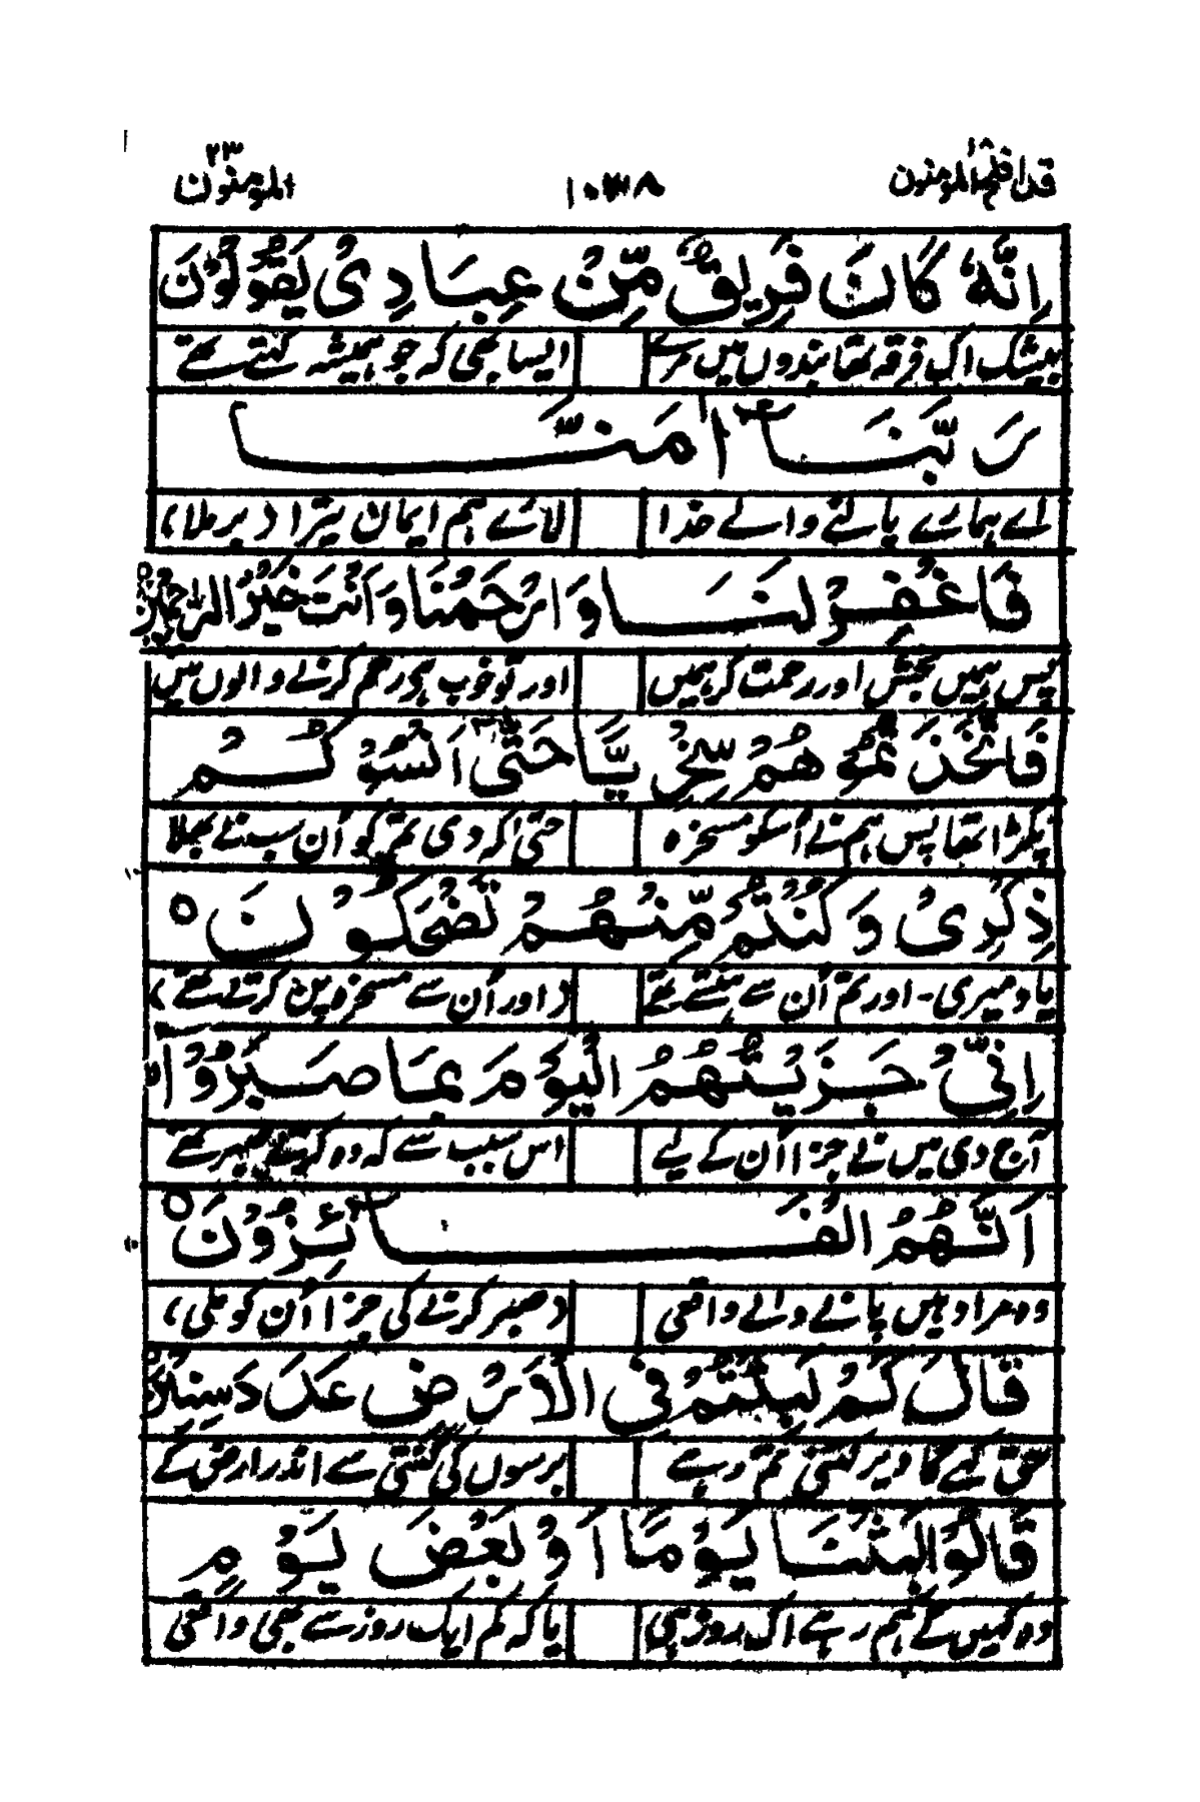 قد افلح ۱۸ المؤمنون ۱۰۳۸ المؤمنون ۲۳
اِنَّهٗ كَانَ فَرِيْقٌ مِّنْ عِبَادِىْ يَقُوْلُوْنَ
بیشک اک فرقہ تھا بندوں میں مرے ایسا بھی کہ جو ہمیشہ کہتے تھے
رَبَّنَاۤ اٰمَنَّا
اے ہمارے پالنے والے خدا لائے ہم ایمان تیرا (برملا)
فَاغْفِرْ لَنَا وَارْحَمْنَا وَاَنْتَ خَيْرُ الرّٰحِمِيْنَ
پس ہمیں بخش اور رحمت کر ہمیں اور تو خوب ہے رحم کرنے والوں میں
فَاتَّخَذْتُمُوْهُمْ سِخْرِيًّا حَتّٰٓى اَنْسَوْكُمْ
پکڑا تھا پس ہم نے اسکو مسخرہ حتیٰ اکہ دی تم کو ان سب نے بھلا
ذِكْرِىْ وَكُنْتُمْ مِّنْهُمْ تَضْحَكُوْنَ ۝
یاد میری۔ اور تم ان سے ہنستے تھے (اور ان سے مسخرہ پن کرتے تھے)
اِنِّىْ جَزَيْتُهُمُ الْيَوْمَ بِمَا صَبَرُوْۤا
آج دی میں نے جزا ان کے لیے اس سبب سے کہ وہ کرتے صبر تھے
اَنَّهُمْ هُمُ الْفَآئِزُوْنَ ۝
وہ مراد ہیں پانے والے واقعی (صبر کرنے کی جزا ان کو ملی)
قَالَ كَمْ لَبِثْتُمْ فِى الْاَرْضِ عَدَدَ سِنِيْنَ
حق کہے گا دیر کتنی تم رہے برسوں کی گنتی سے اندر ارض کے
قَالُوْا لَبِثْنَا يَوْمًا اَوْ بَعْضَ يَوْمٍ
وہ کہیں گے ہم رہے اک روز ہی یا کہ کم ایک روز سے بھی واقعی